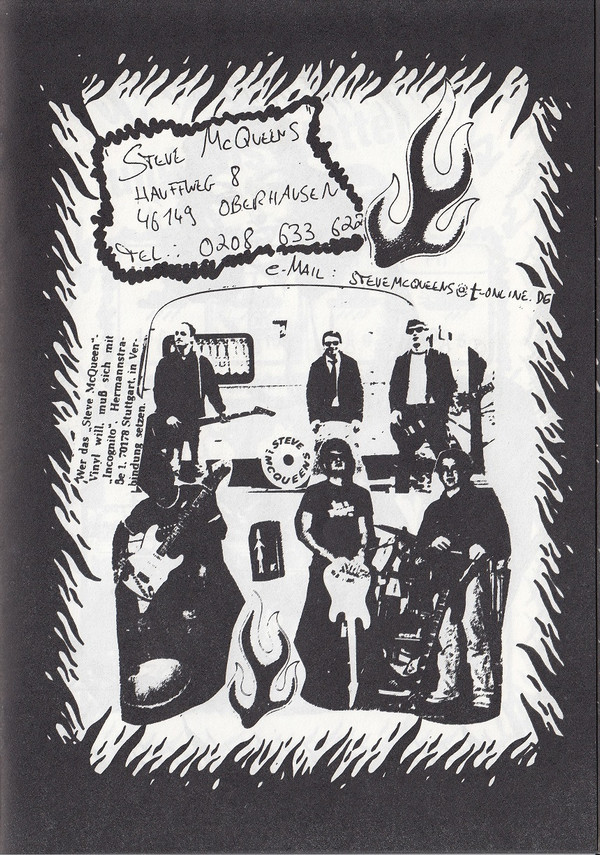 STEVE McQUEENS
HAUFFWEG 8
46149 OBERHAUSEN
TEL.: 0208 633 622
e-MAIL: STEVEMCQUEENS@t-ONLINE.DE
"Wer das „Steve McQueen“-
Vinyl will, muß sich mit
„Incognito“, Hermannstra-
ße 1, 70178 Stuttgart, in Ver-
bindung setzen.
STEVE
McQUEENS
pearl